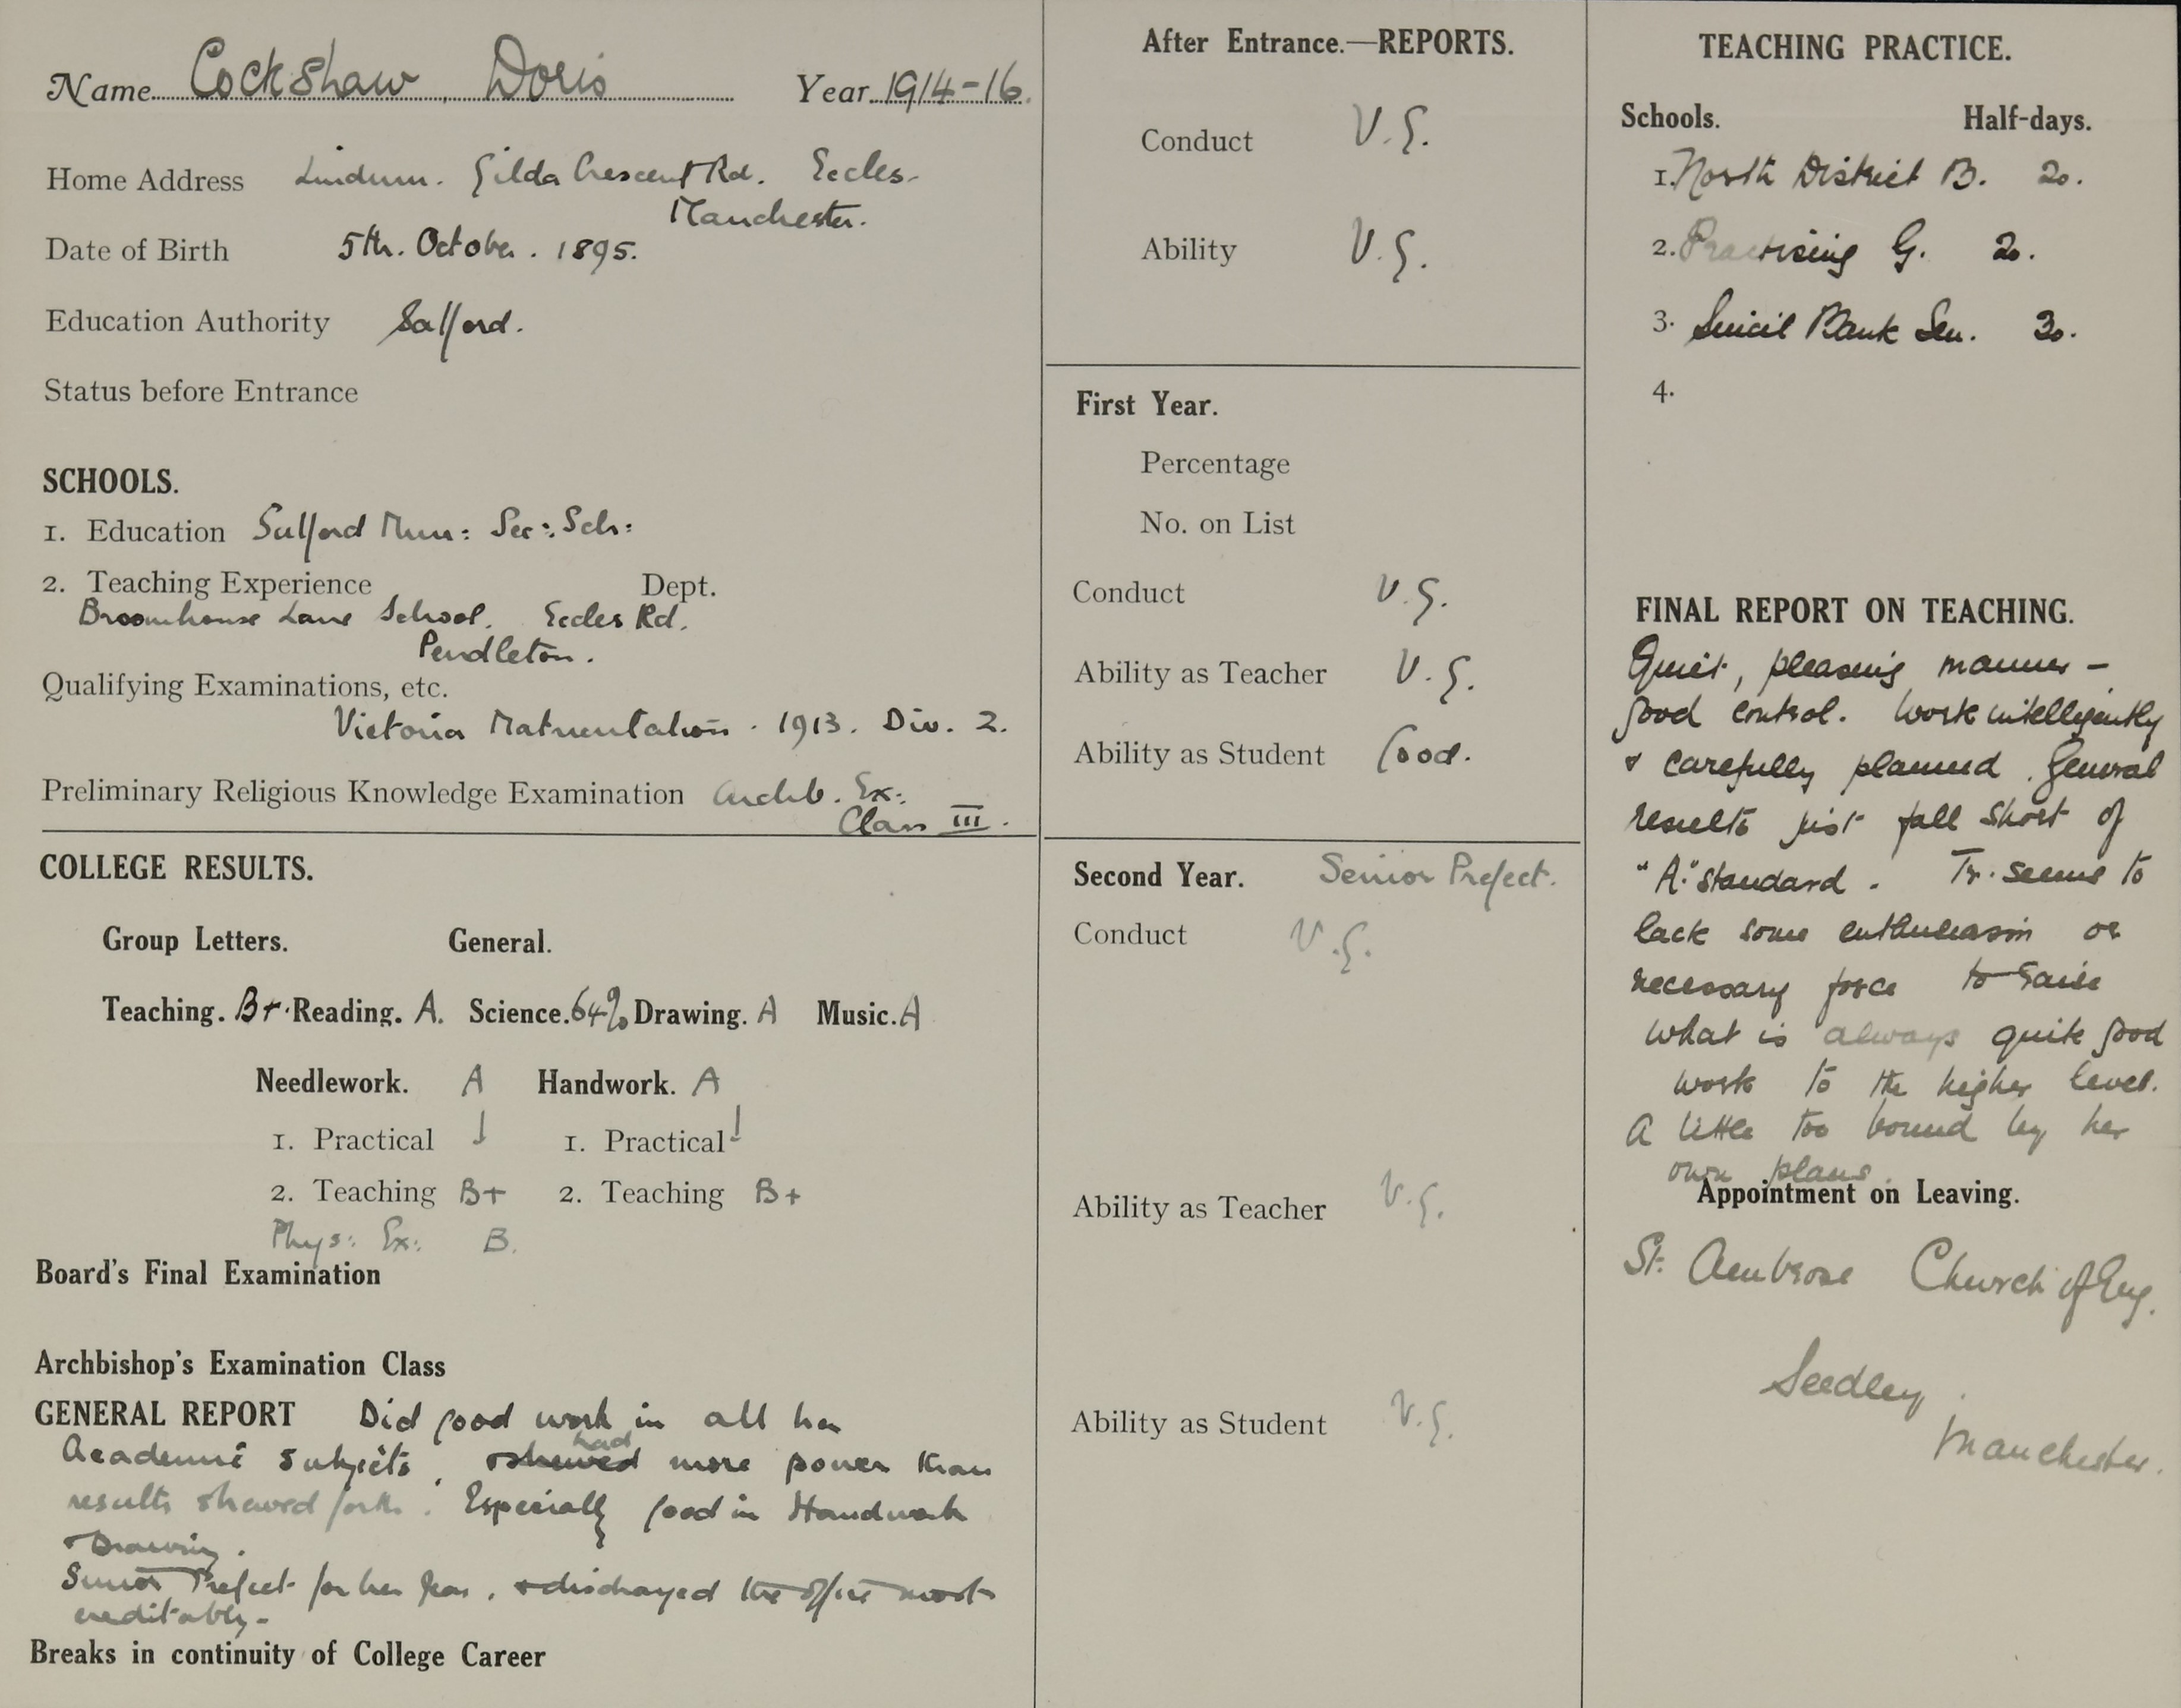 Name Cockshaw, Doris Year 1914-16.
Home Address Lindum. Gilda Crescent Rd. Eccles.
Manchester.
Date of Birth 5th. October. 1895.
Education Authority Salford.
Status before Entrance
SCHOOLS.
1. Education Salford Mun: Sec: Sch:
2. Teaching Experience Dept.
Broomhouse Lane School. Eccles Rd.
Pendleton.
Qualifying Examinations, etc.
Victoria Matriculation. 1913. Div. 2.
Preliminary Religious Knowledge Examination Archb. Ex:
Class III.
COLLEGE RESULTS.
Group Letters. General.
Teaching. B+. Reading. A. Science. 64% Drawing. A Music. A
Needlework. A Handwork. A
1. Practical ↓ 1. Practical ↓
2. Teaching B+ 2. Teaching B+
Phys: Ex: B.
Board's Final Examination
Archbishop's Examination Class
GENERAL REPORT Did good work in all her
Academic subjects, & shewed had more power than
results shewed forth. Especially good in Handwork
& Drawing.
Senior Prefect for her Year, & discharged the office most
creditably.
Breaks in continuity of College Career
After Entrance.—REPORTS.
Conduct V.G.
Ability V.G.
First Year.
Percentage
No. on List
Conduct V.G.
Ability as Teacher V.G.
Ability as Student Good.
Second Year. Senior Prefect.
Conduct V.G.
Ability as Teacher V.G.
Ability as Student V.G.
TEACHING PRACTICE.
Schools. Half-days.
1. North District B. 20.
2. Practising G. 20.
3. Bank Sen. 30.
4.
FINAL REPORT ON TEACHING.
Quiet, pleasing manner –
good control. Work intelligently
& carefully planned. General
results just fall short of
"A" standard. Tr. seems to
lack some enthusiasm or
necessary force to raise
what is always quite good
work to the higher level.
A little too bound by her
own plans.
Appointment on Leaving.
St. Ambrose Church of Eng.
Seedley.
Manchester.